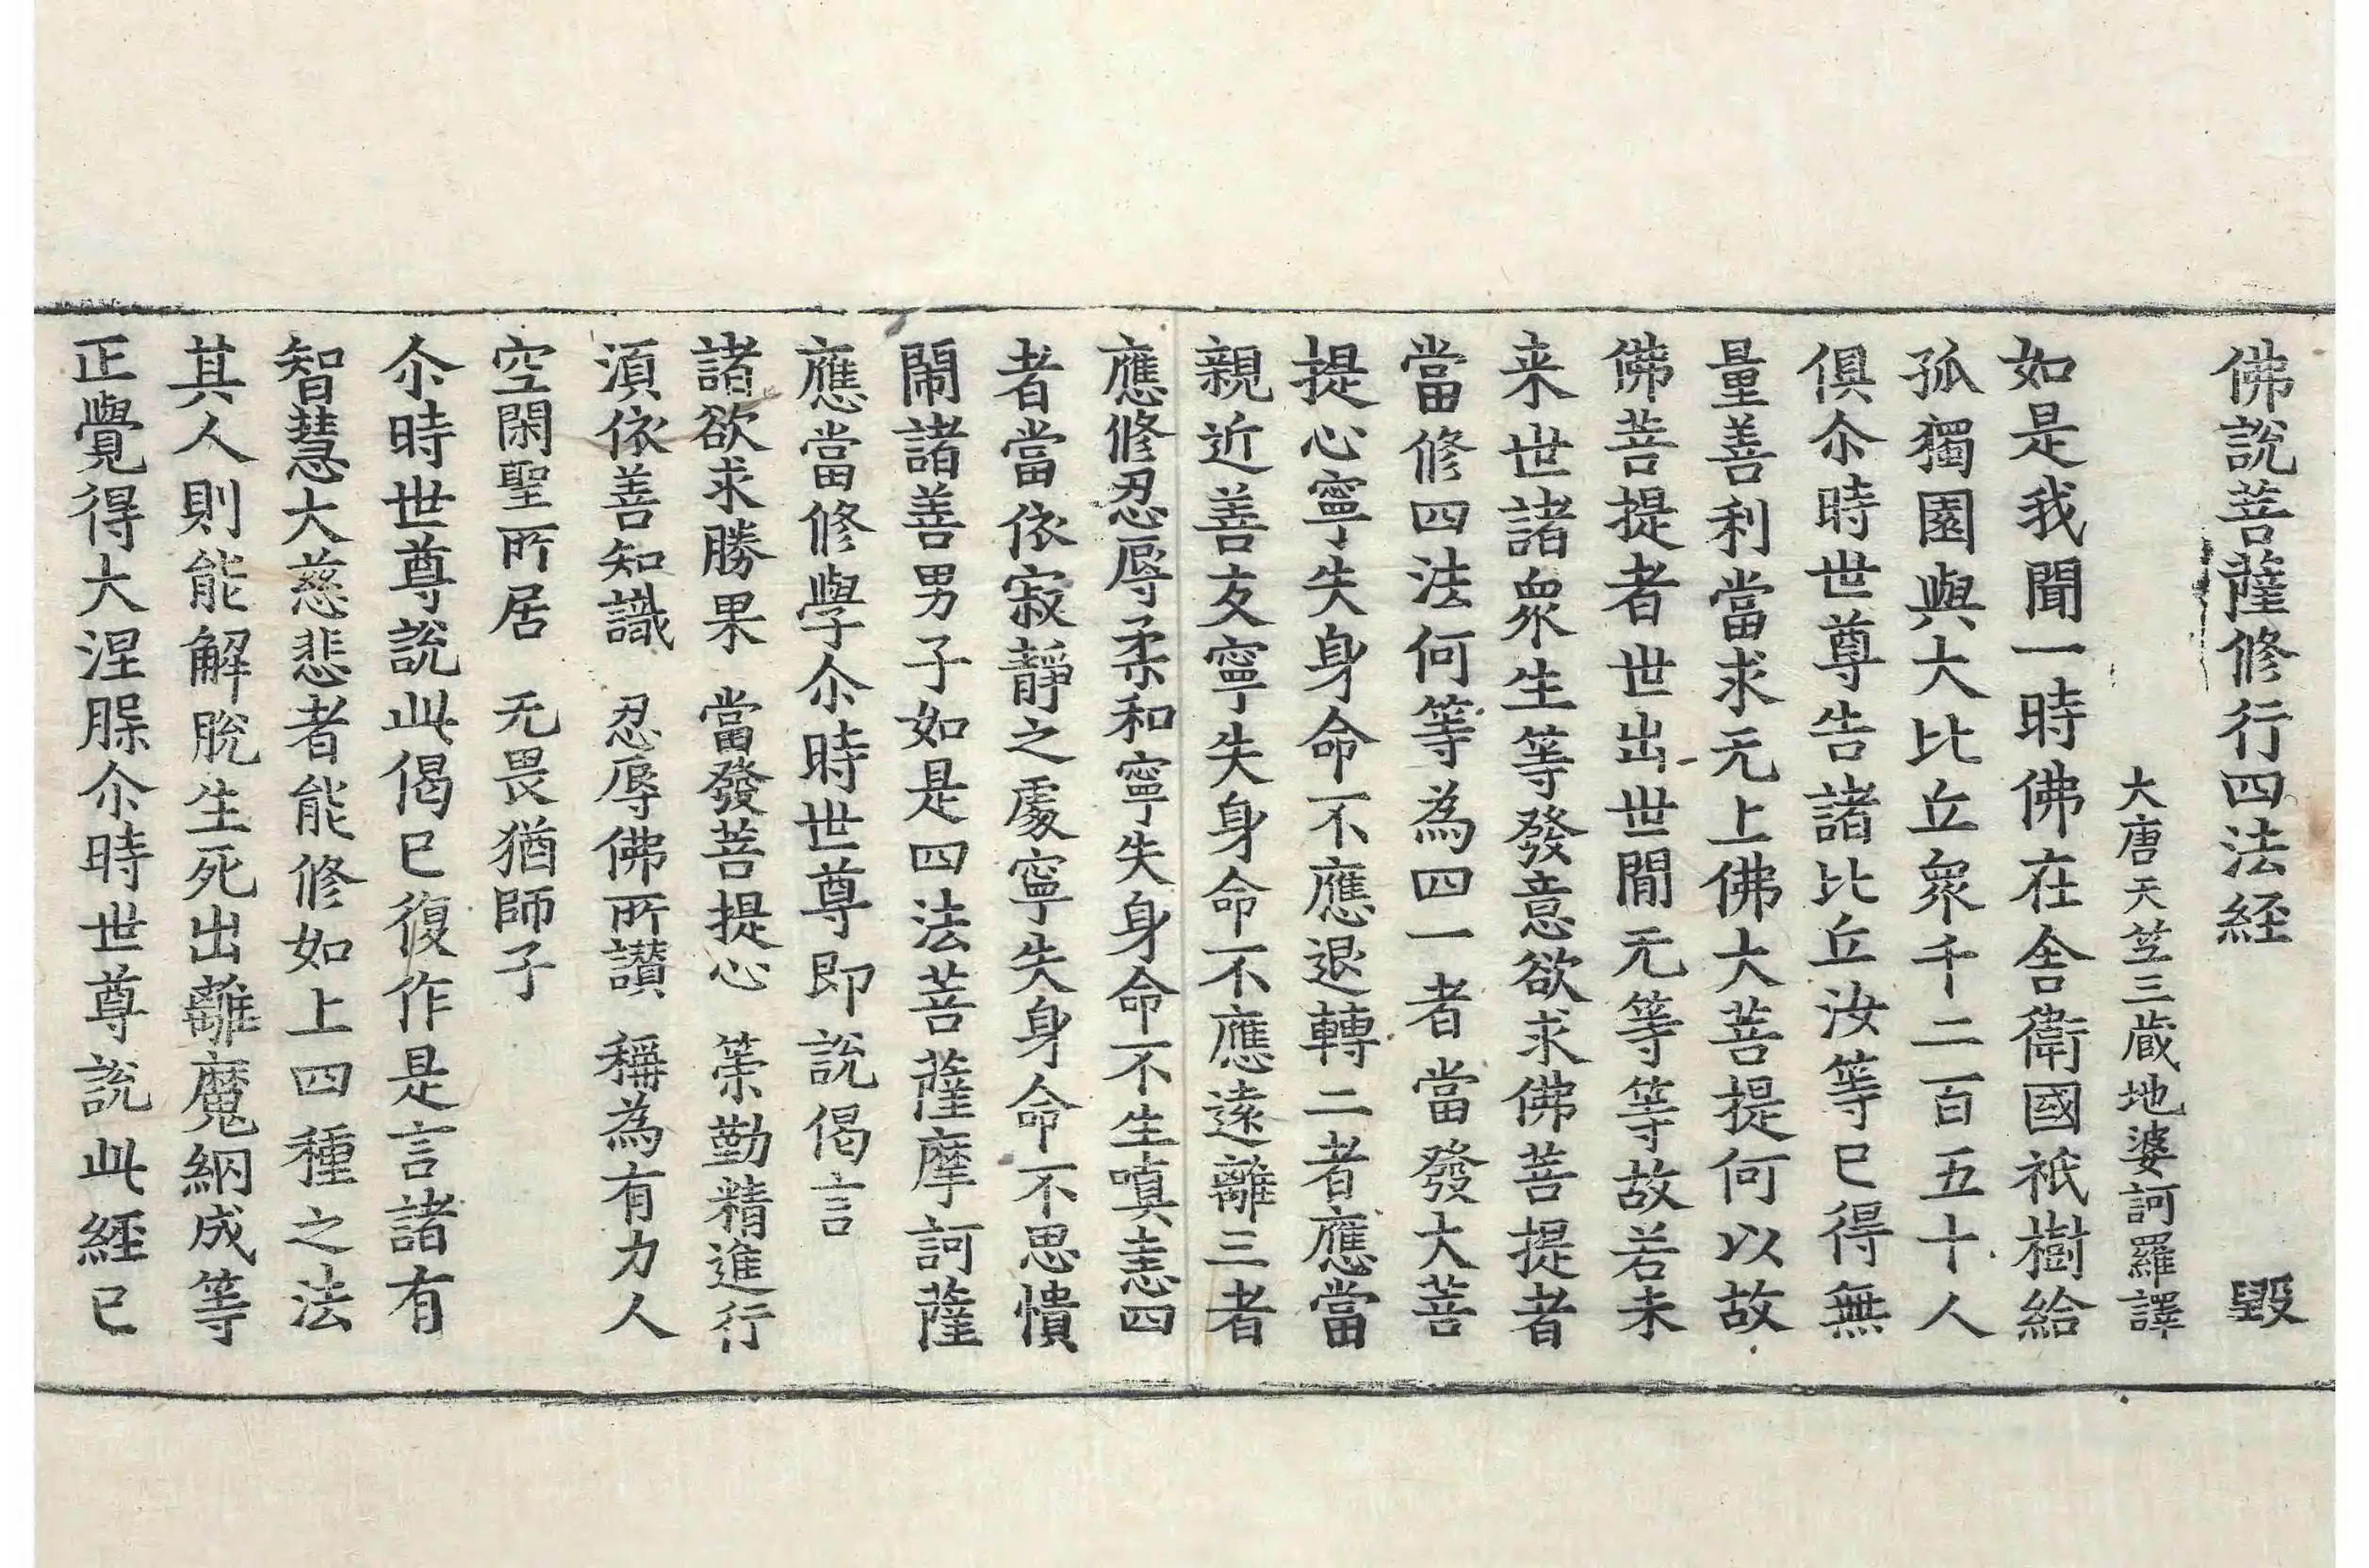 佛說菩薩修行四法経　毀
大唐天竺三蔵地婆訶羅譯
如是我聞一時佛在舎衛國祇樹給
孤獨園與大比丘衆千二百五十人
俱尒時世尊告諸比丘汝等已得無
量善利當求无上佛大菩提何以故
佛菩提者世出世間无等等故若未
来世諸衆生等發意欲求佛菩提者
當修四法何等為四一者當發大菩
提心寧失身命不應退轉二者應當
親近善友寧失身命不應遠離三者
應修忍辱柔和寧失身命不生嗔恚四
者當依寂靜之處寧失身命不思憒
閙諸善男子如是四法菩薩摩訶薩
應當修學尒時世尊即說偈言
諸欲求勝果　當發菩提心　策勤精進行
湏依善知識　忍辱佛所讃　稱為有力人
空閑聖所居　无畏猶師子
尒時世尊說此偈已復作是言諸有
智慧大慈悲者能修如上四種之法
其人則能解脫生死出離魔網成等
正覺得大涅槃尒時世尊說此經已